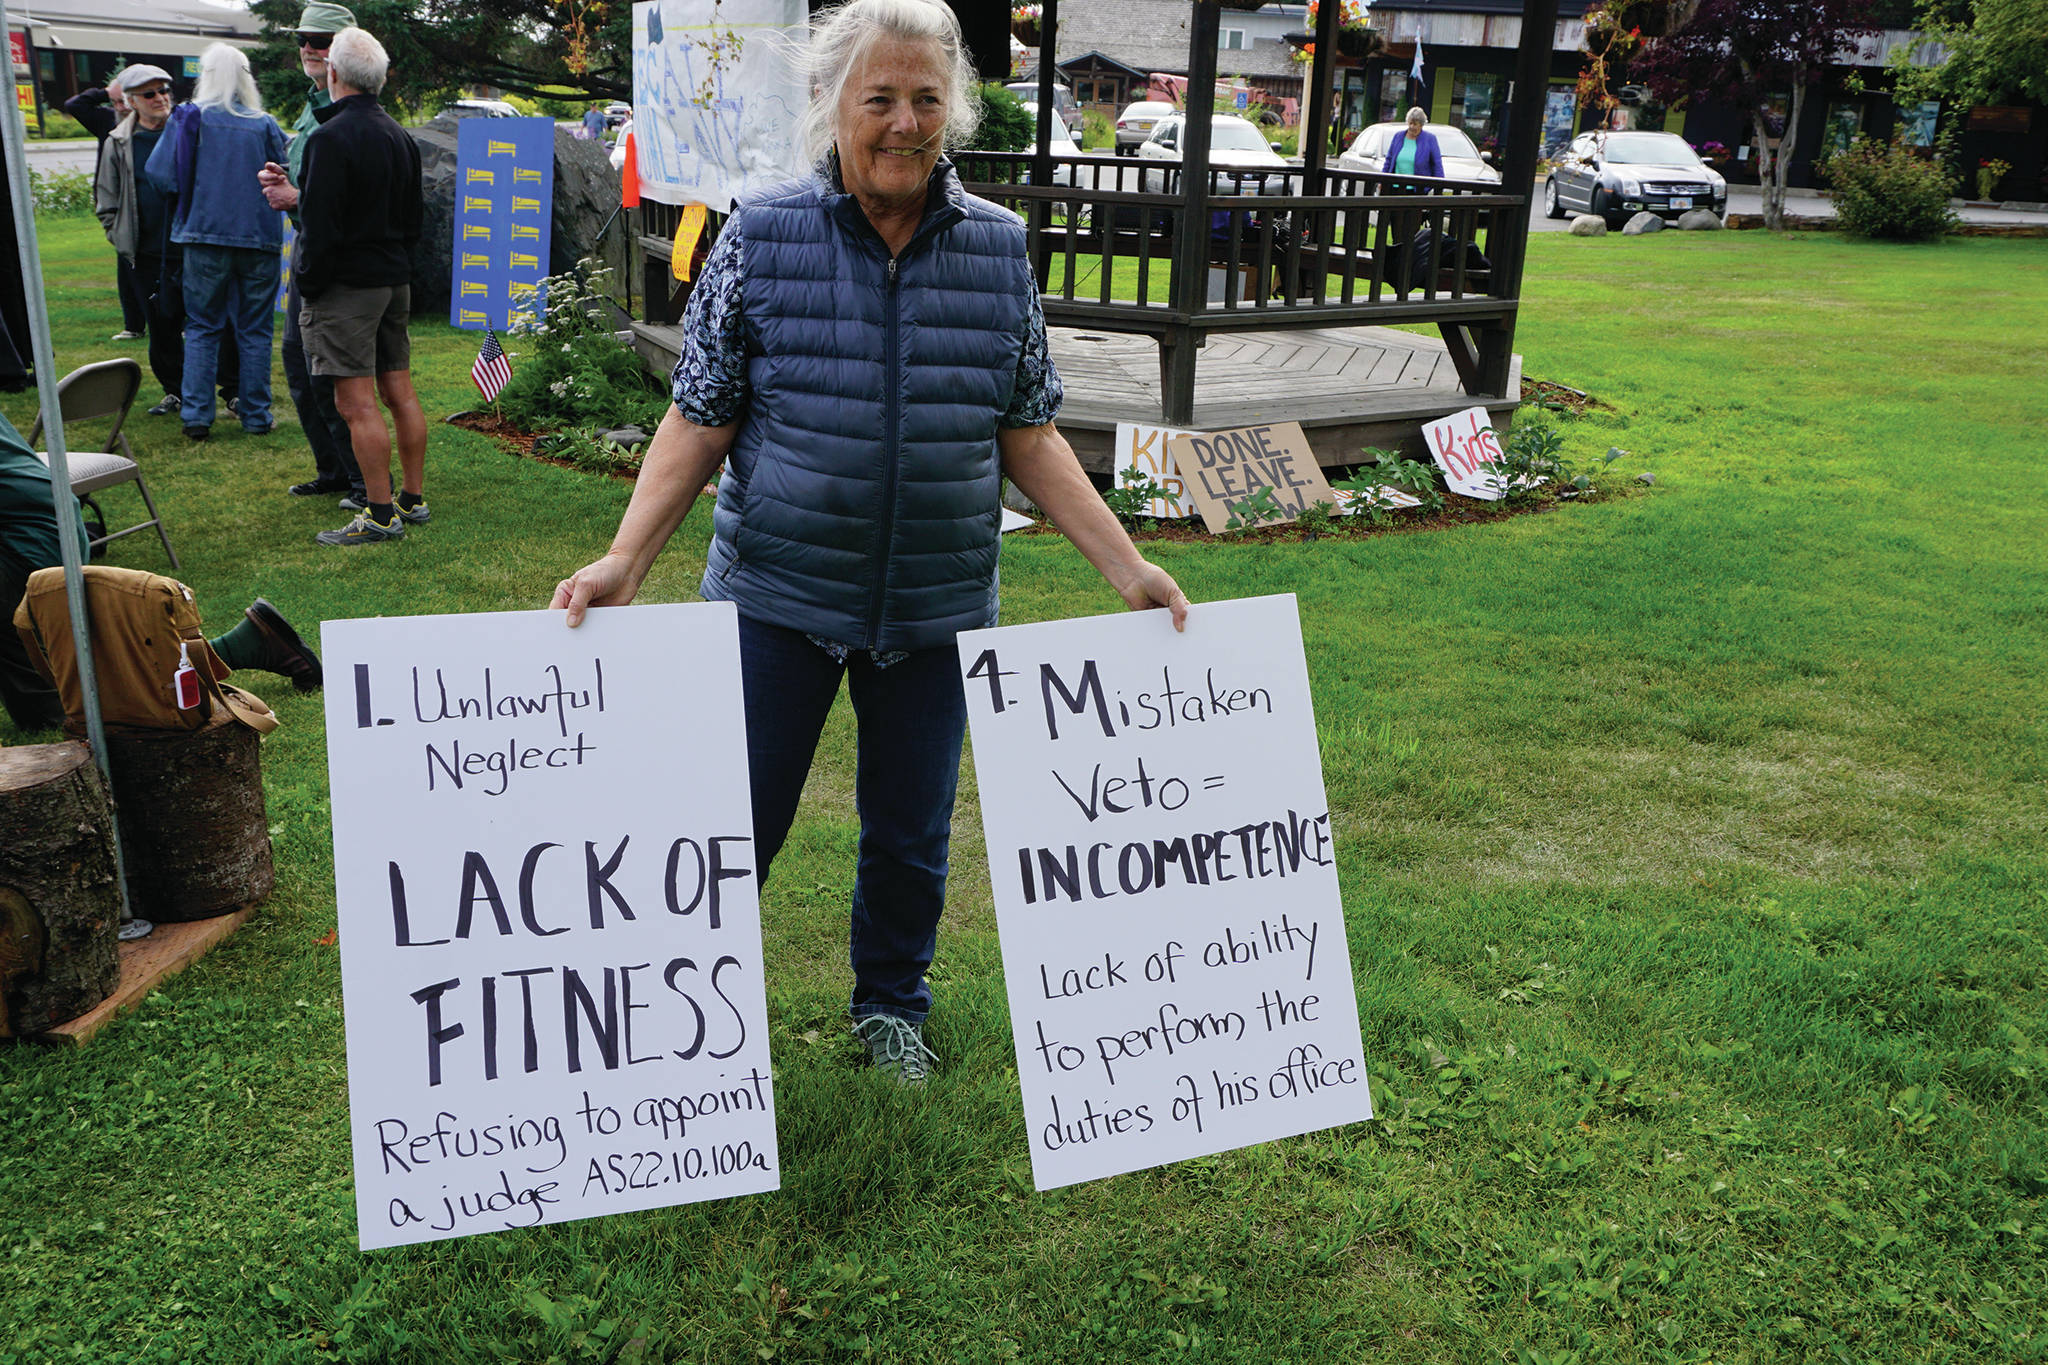 RECALL
DUNLEAVY
1. Unlawful
Neglect
LACK OF
FITNESS
Refusing to appoint
a judge AS22.10.100a
4. Mistaken
Veto =
INCOMPETENCE
Lack of ability
to perform the
duties of his office
DONE.
LEAVE.
NOW
Kids
KI